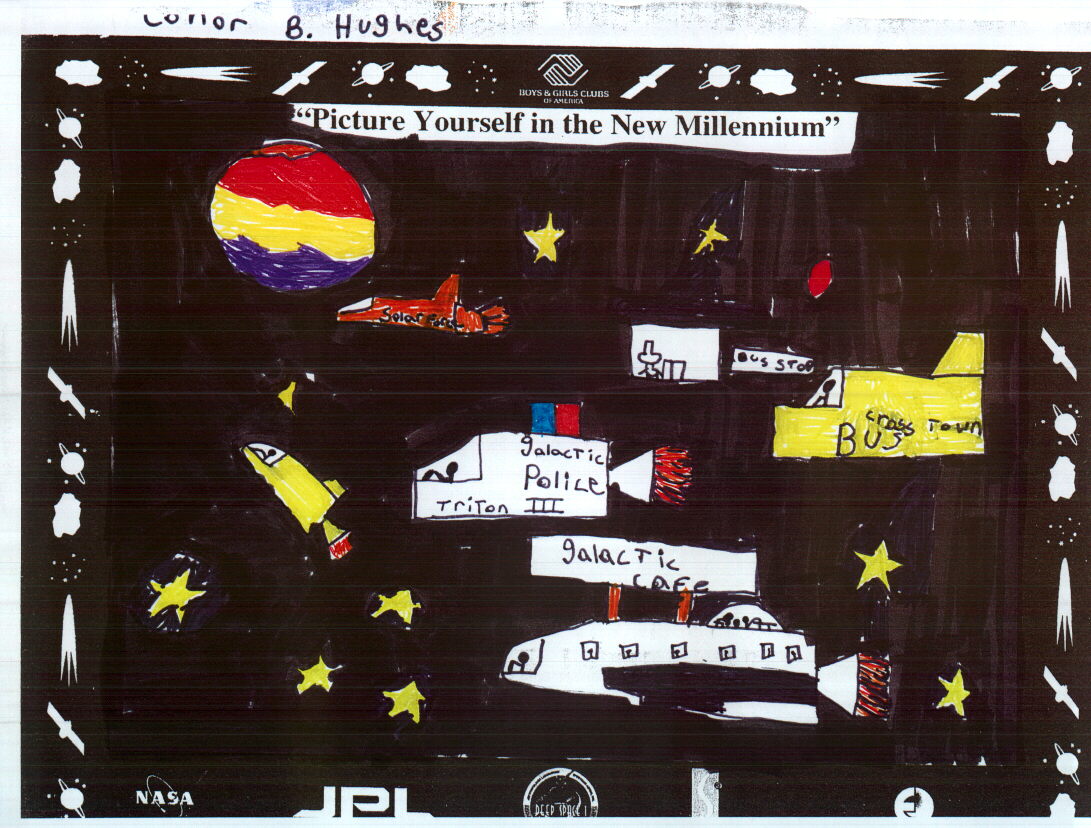 Conor B. Hughes
BOYS & GIRLS CLUBS
OF AMERICA
"Picture Yourself in the New Millennium"
Solar
BUS STOP
Cross Town
BUS
galactic
Police
Triton III
galactic
cafe
NASA
JPL
DEEP SPACE 1